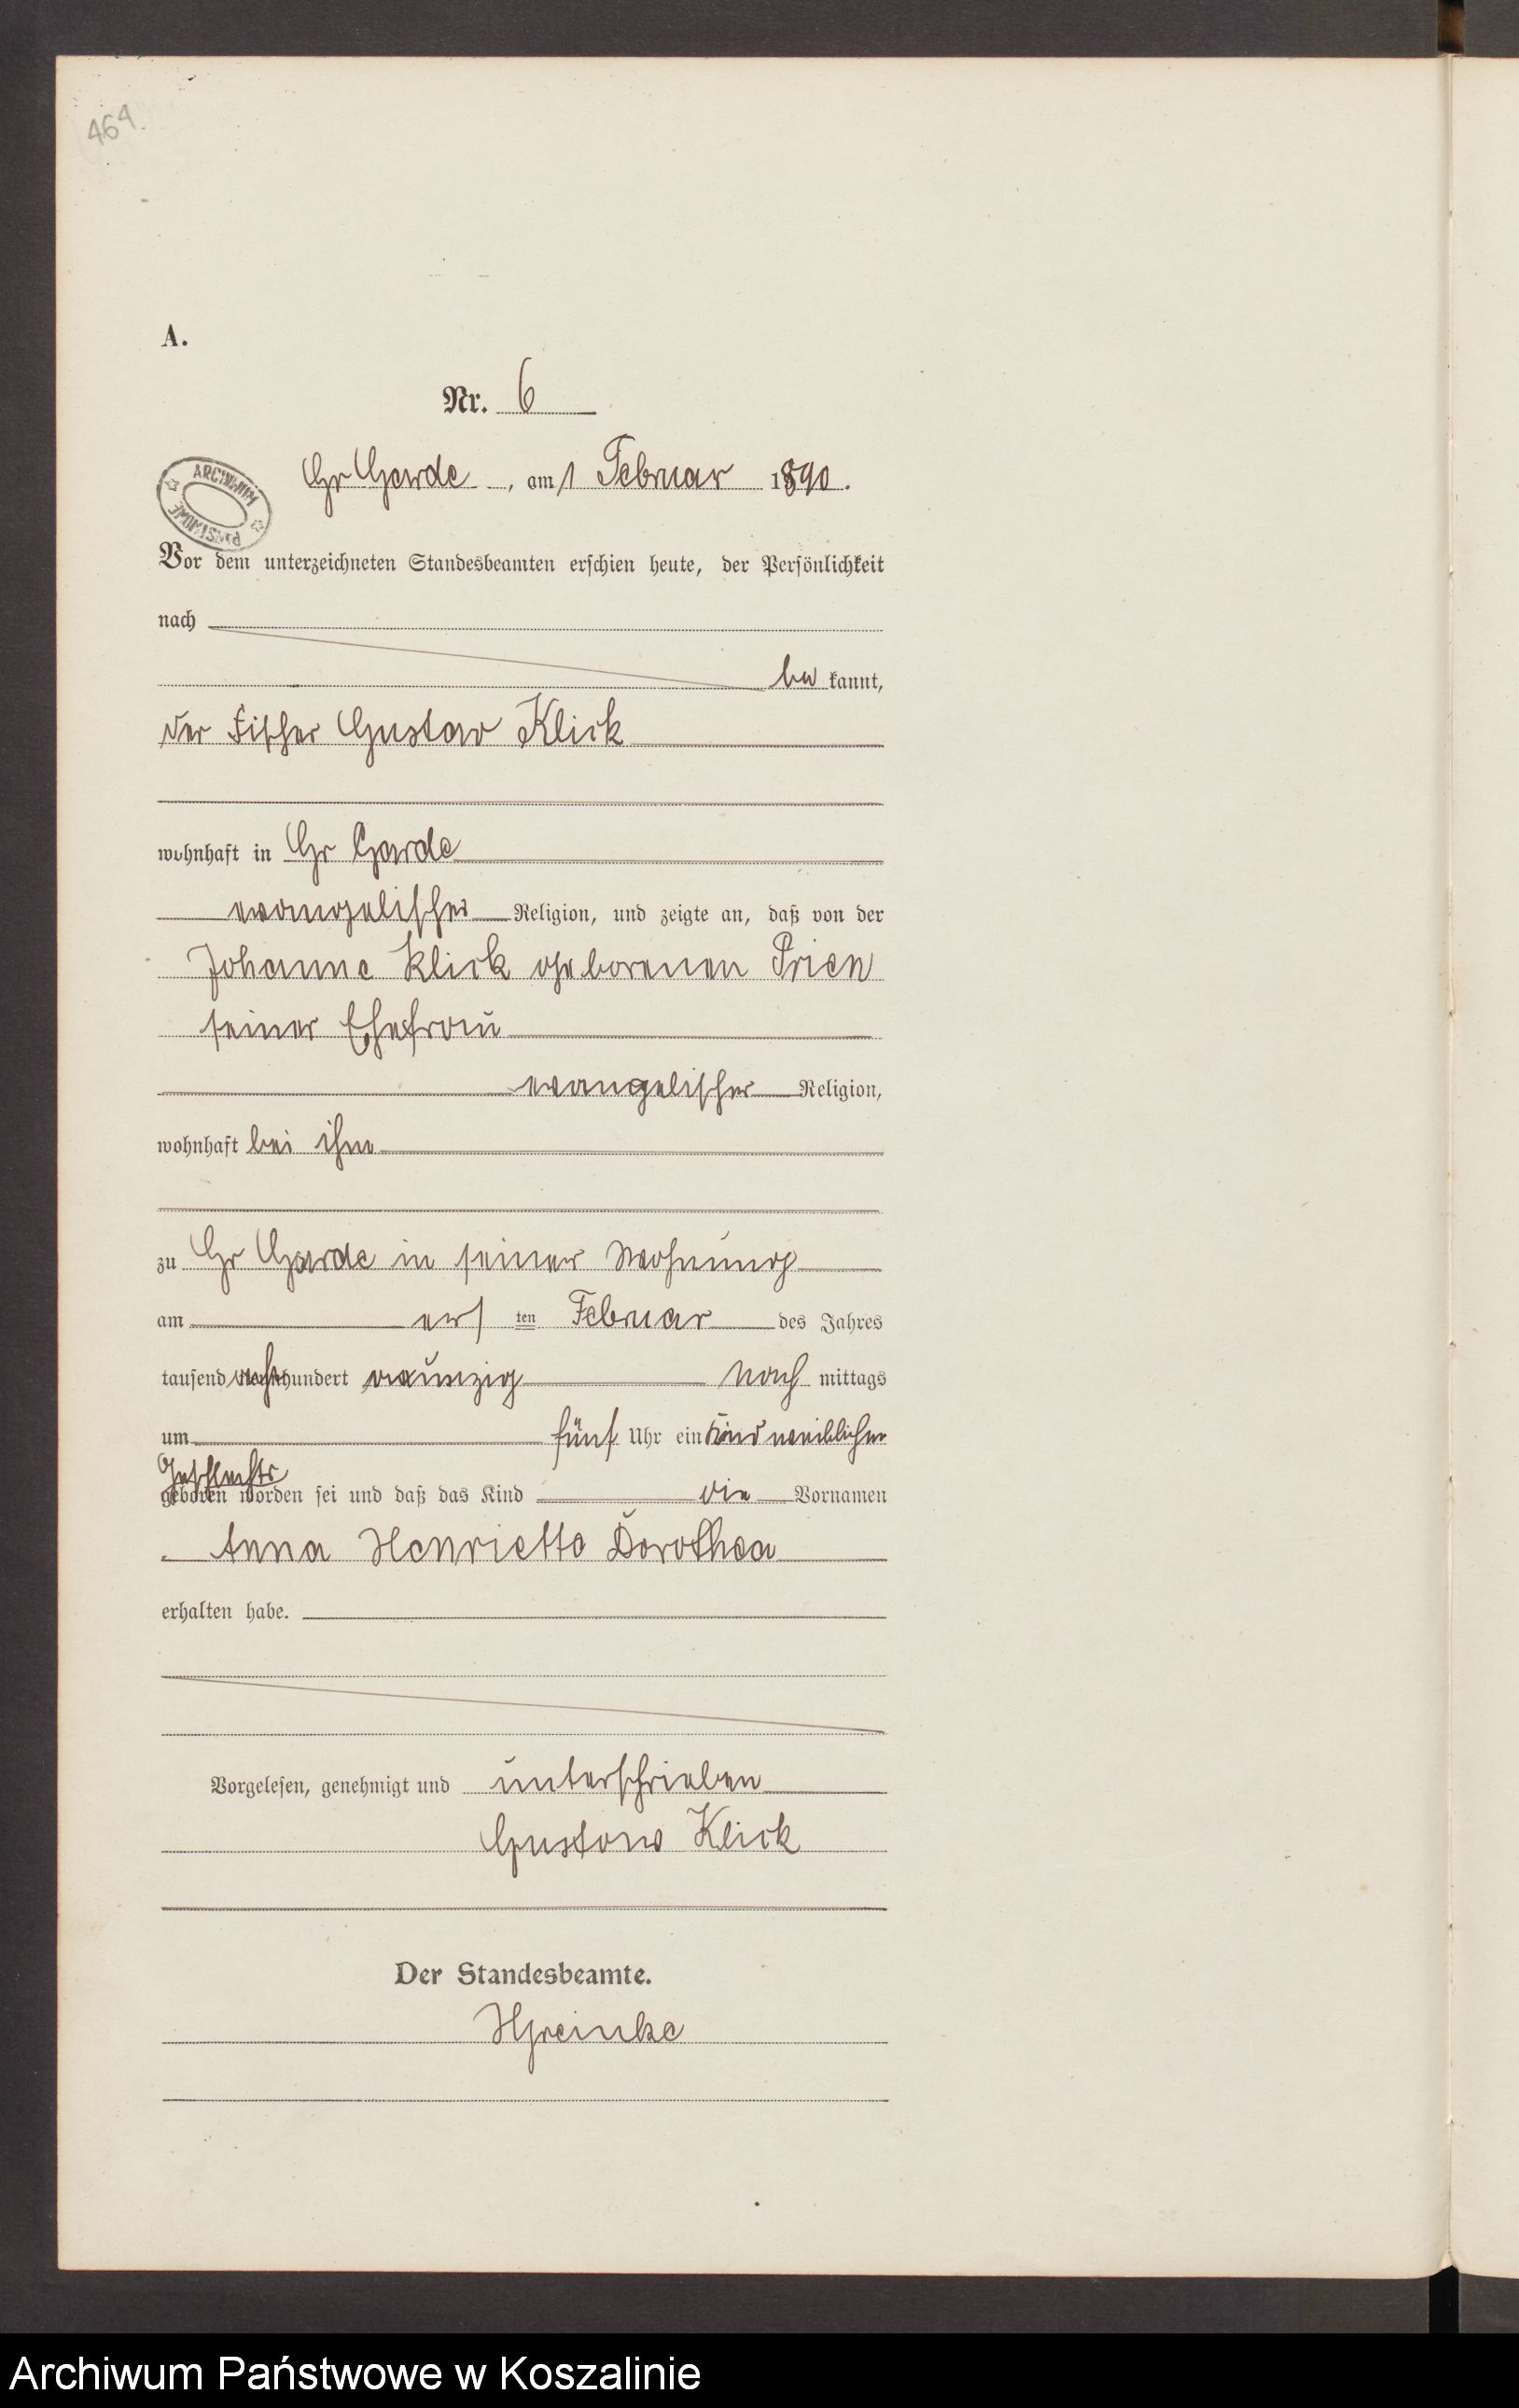 464.
A.
Nr. 6
ARCHIWUM
PAŃSTWOWE
Gr Garde, am 1 Februar 1890.
Vor dem unterzeichneten Standesbeamten erschien heute, der Persönlichkeit
nach
be kannt,
der Fischer Gustav Klick
wohnhaft in Gr Garde
evangelischer Religion, und zeigte an, daß von der
Johanne Klick geborenen Prien
seiner Ehefrau
evangelischer Religion,
wohnhaft bei ihm
zu Gr Garde in seiner Wohnung
am ers ten Februar des Jahres
tausend acht hundert neunzig Nach mittags
um fünf Uhr ein Kind weiblichen
Geschlechts
geboren worden sei und daß das Kind die Vornamen
Anna Henriette Dorothea
erhalten habe.
Vorgelesen, genehmigt und unterschrieben
Gustav Klick
Der Standesbeamte.
Archiwum Państwowe w Koszalinie